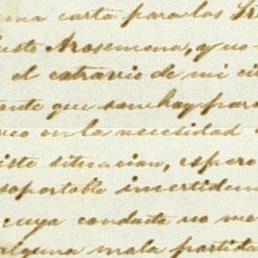 una carta para los Sr
Justo Arosemena, y no
el extravio de mi ci
ante que son hay para
veo en la necesidad
ista situacion, espero
soportable incertidum
cuya conducta no me
alguna mala partida